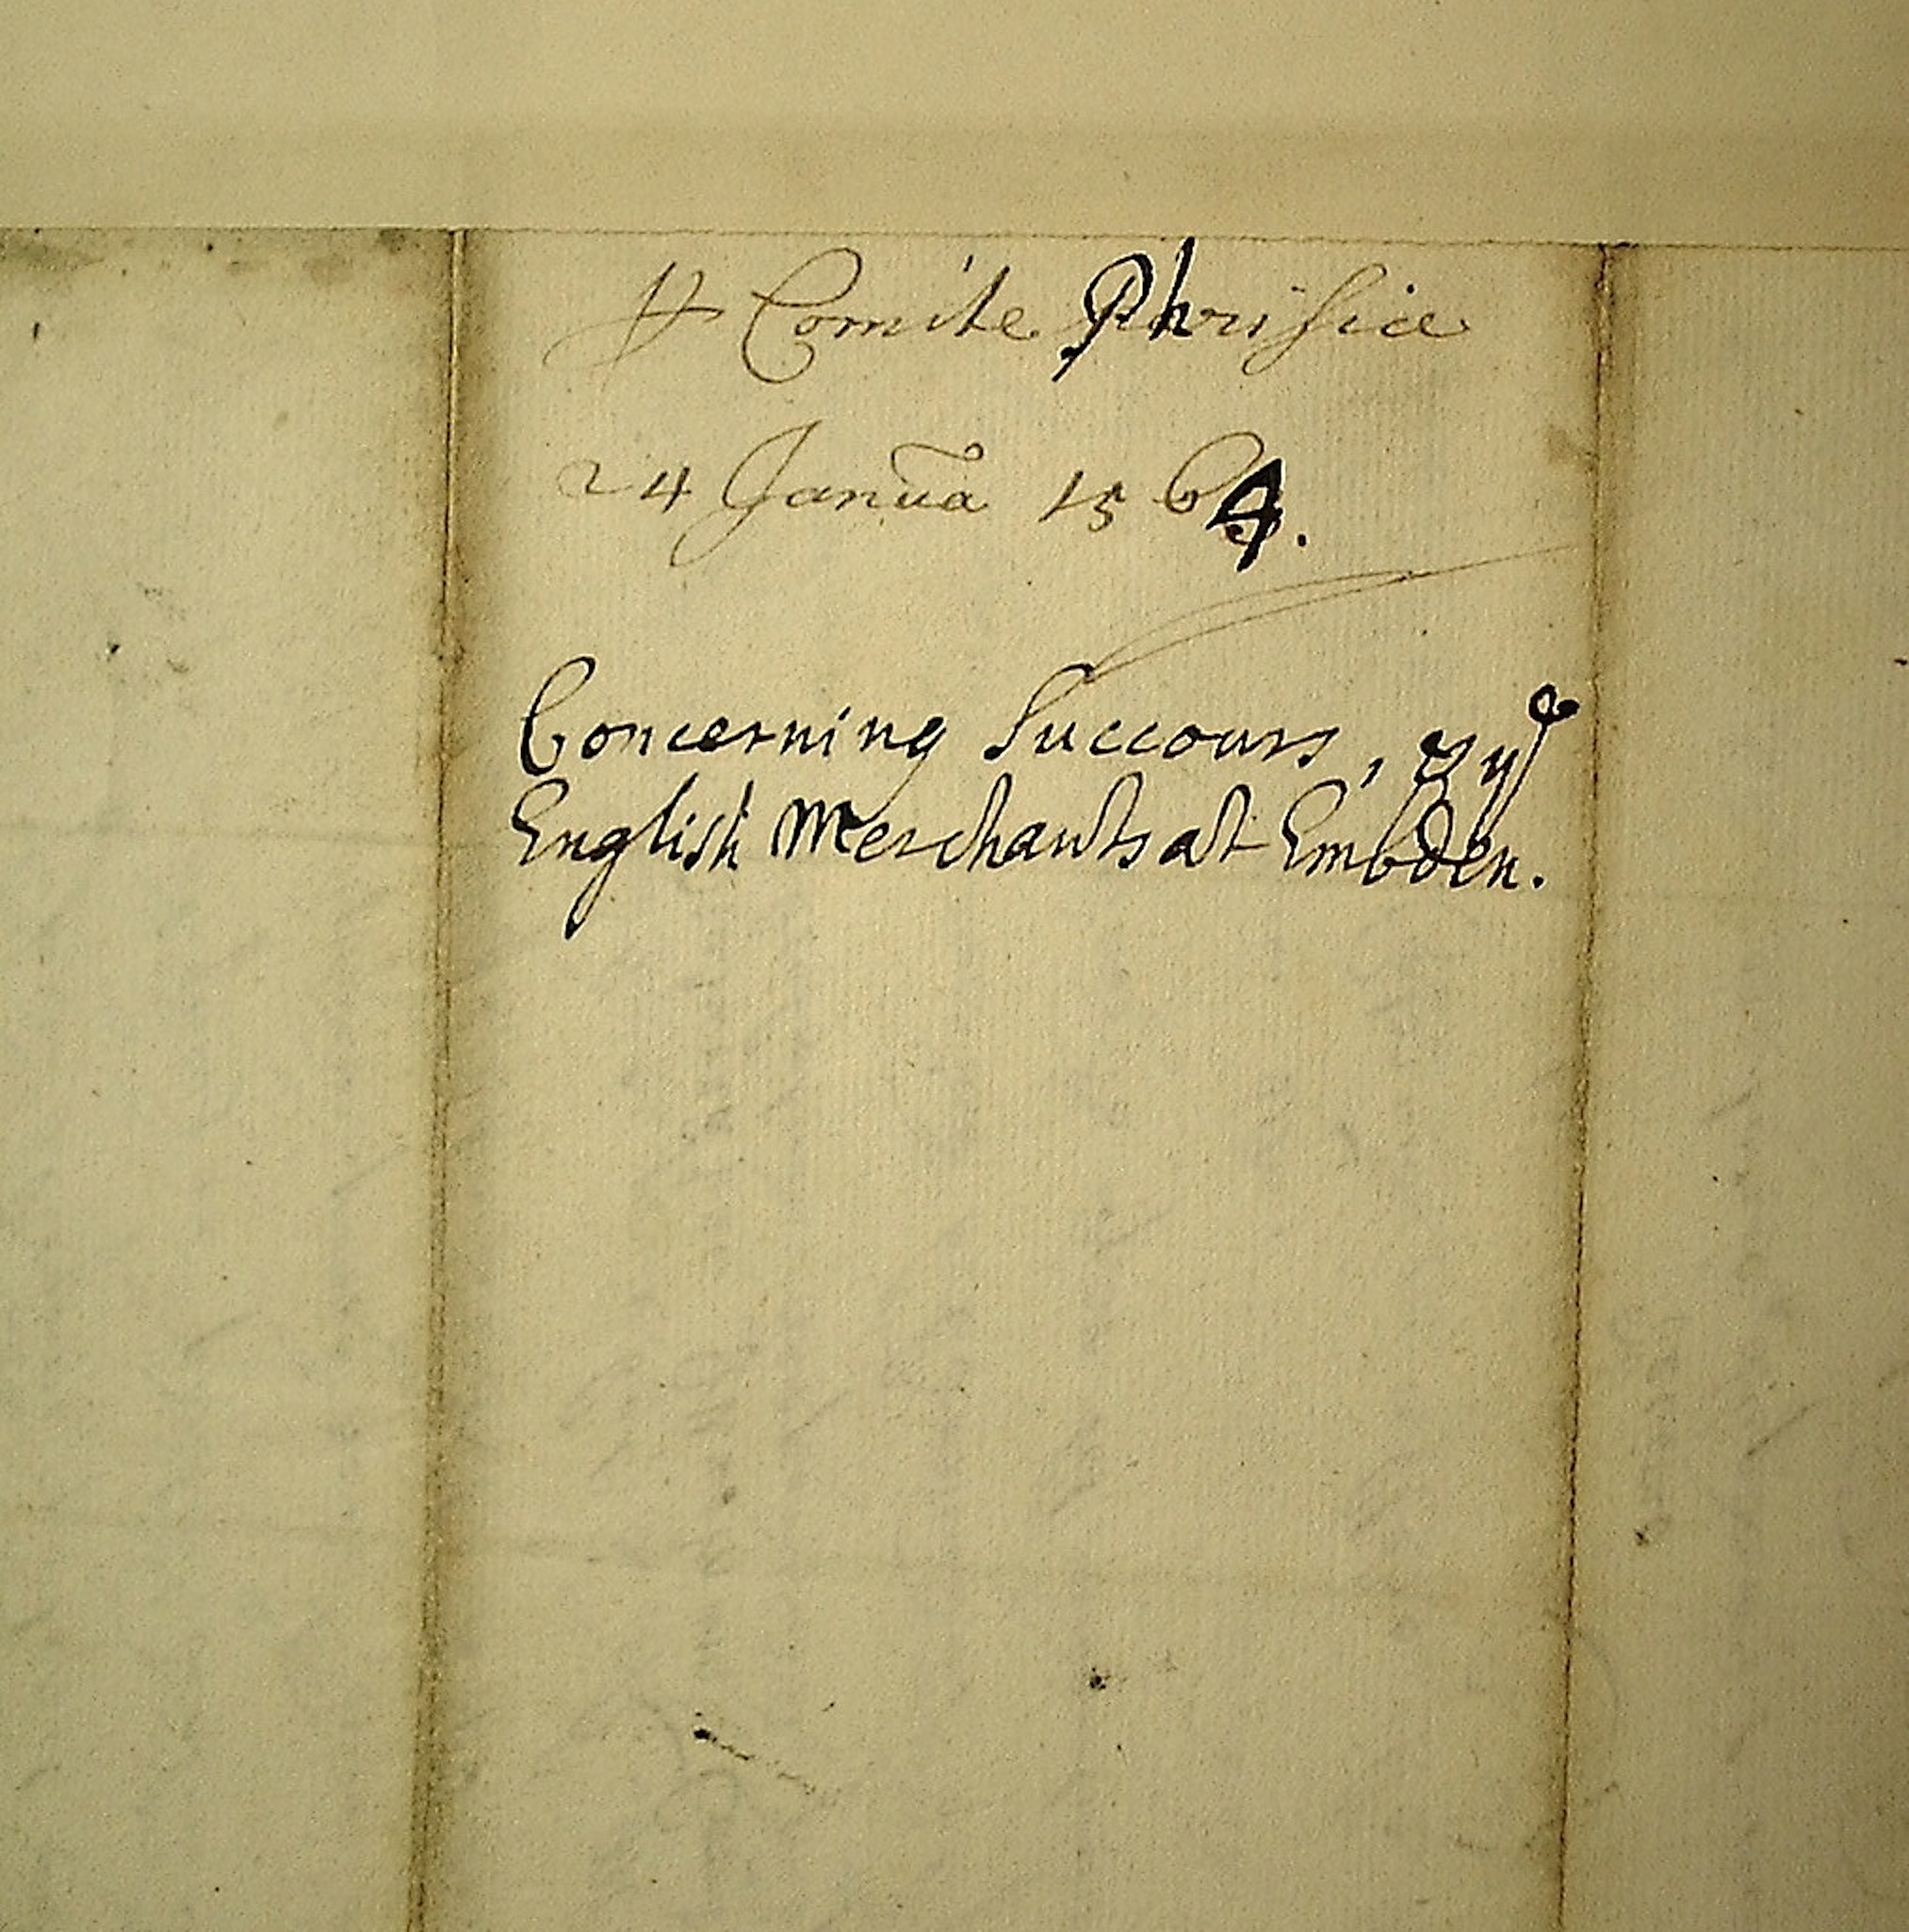 Comite Phrisiae
24 Januа̄ 1564.
Concerning Succours, & yᵉ
English Merchants at Embden.